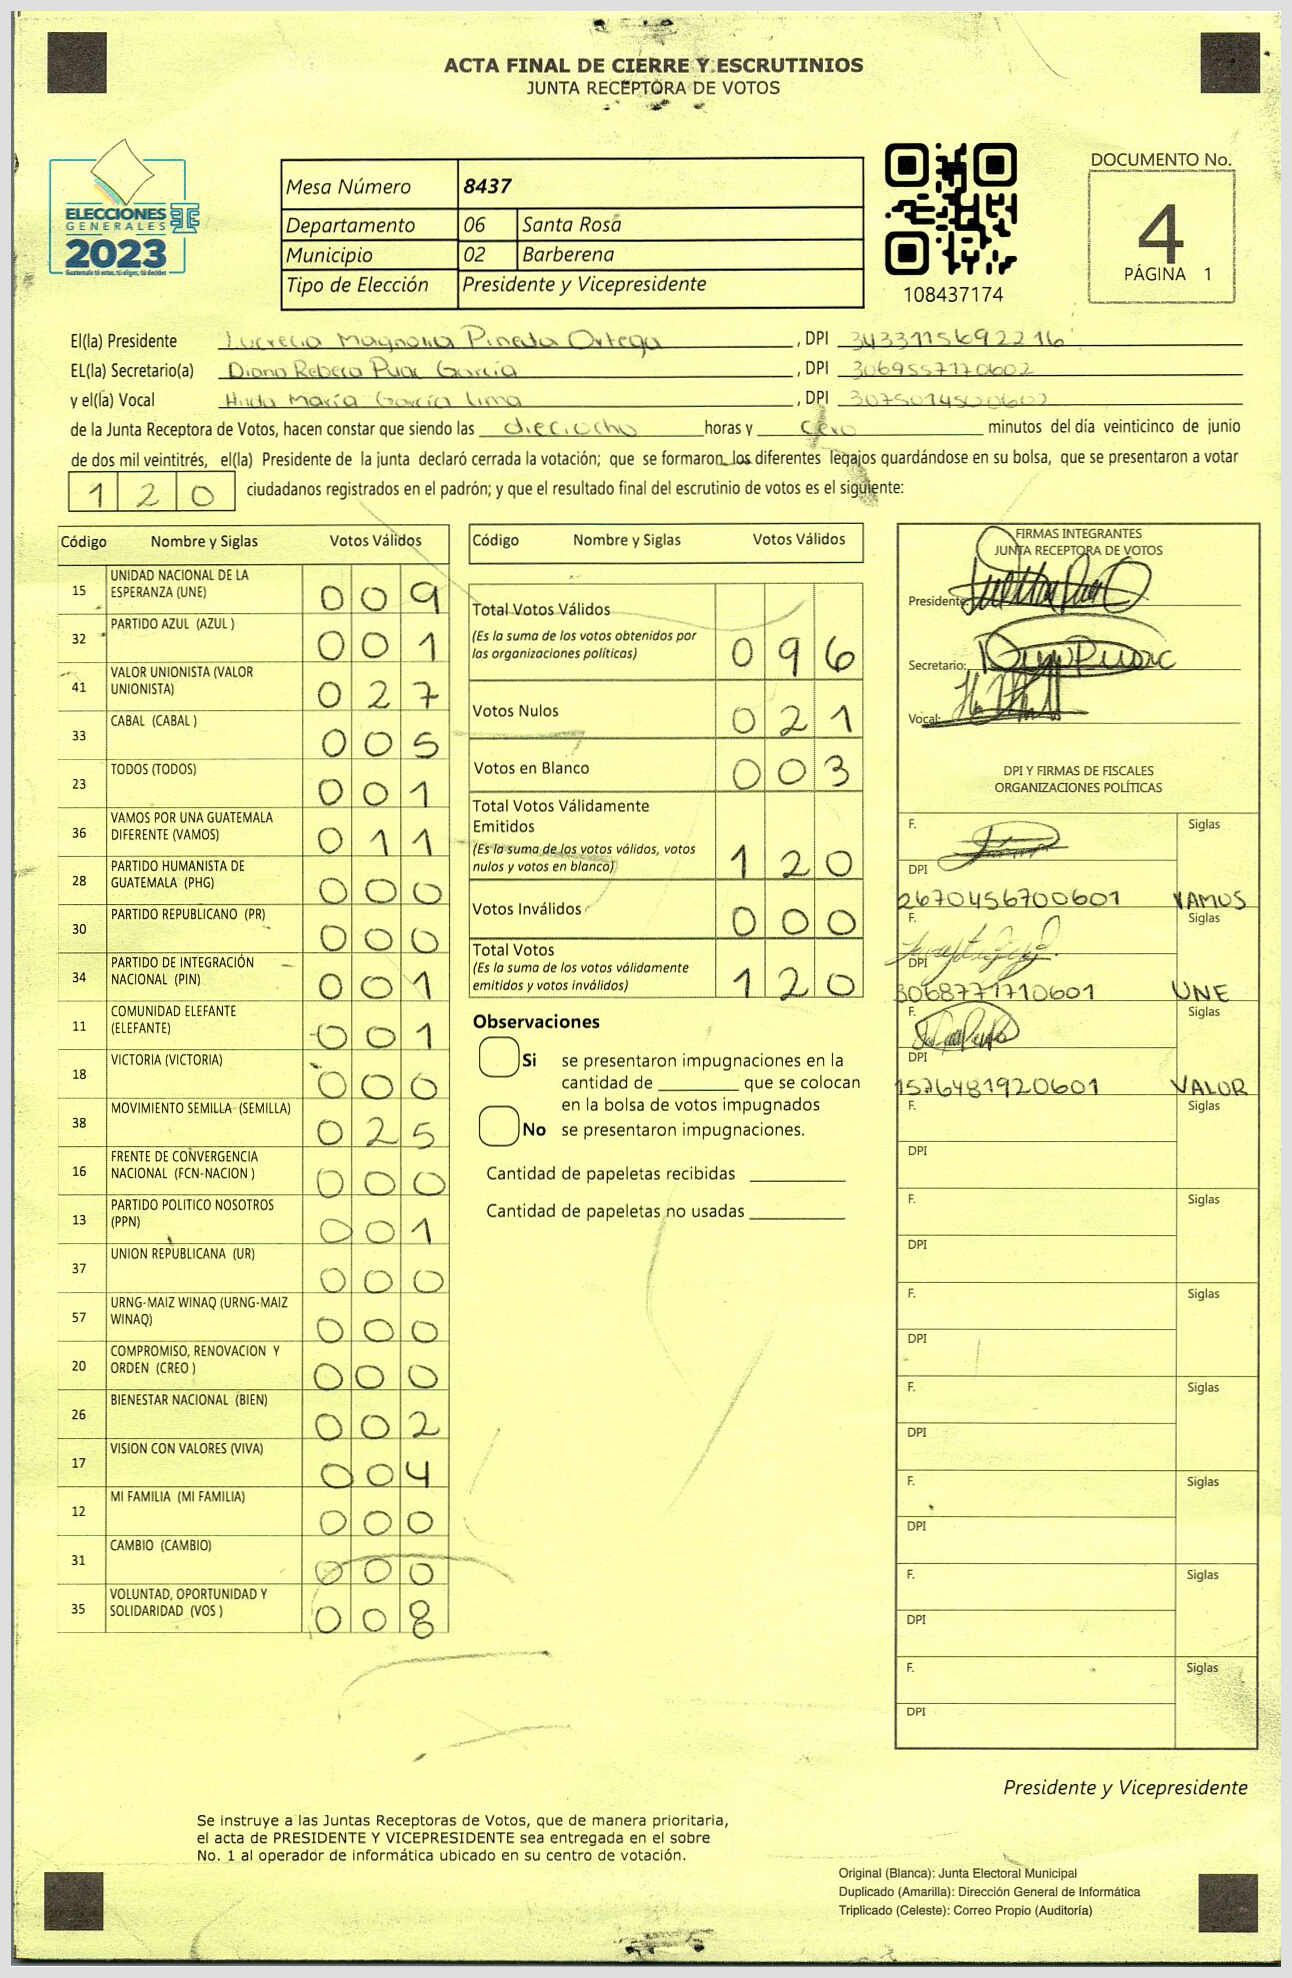 ACTA FINAL DE CIERRE Y ESCRUTINIOS
JUNTA RECEPTORA DE VOTOS
ELECCIONES
GENERALES
2023
Guatemala tú eres, tú eliges, tú decides
Mesa Número 8437
Departamento 06 Santa Rosa
Municipio 02 Barberena
Tipo de Elección Presidente y Vicepresidente
108437174
DOCUMENTO No.
4
PÁGINA 1
El(la) Presidente Lucrecia Magnolia Pineda Ortega, DPI 3433115692216
EL(la) Secretario(a) Diana Rebeca Puac García, DPI 3069557170602
y el(la) Vocal Hilda María García Lima, DPI
de la Junta Receptora de Votos, hacen constar que siendo las dieciocho horas y cero minutos del día veinticinco de junio
de dos mil veintitrés, el(la) Presidente de la junta declaró cerrada la votación; que se formaron los diferentes legajos guardándose en su bolsa, que se presentaron a votar
120 ciudadanos registrados en el padrón; y que el resultado final del escrutinio de votos es el siguiente:
Código Nombre y Siglas Votos Válidos
15 UNIDAD NACIONAL DE LA
ESPERANZA (UNE) 009
32 PARTIDO AZUL (AZUL ) 001
41 VALOR UNIONISTA (VALOR
UNIONISTA) 027
33 CABAL (CABAL ) 005
23 TODOS (TODOS) 001
36 VAMOS POR UNA GUATEMALA
DIFERENTE (VAMOS) 011
28 PARTIDO HUMANISTA DE
GUATEMALA (PHG) 000
30 PARTIDO REPUBLICANO (PR) 000
34 PARTIDO DE INTEGRACIÓN
NACIONAL (PIN) 001
11 COMUNIDAD ELEFANTE
(ELEFANTE) 001
18 VICTORIA (VICTORIA) 000
38 MOVIMIENTO SEMILLA (SEMILLA) 025
16 FRENTE DE CONVERGENCIA
NACIONAL (FCN-NACION ) 000
13 PARTIDO POLITICO NOSOTROS
(PPN) 001
37 UNION REPUBLICANA (UR) 000
57 URNG-MAIZ WINAQ (URNG-MAIZ
WINAQ) 000
20 COMPROMISO, RENOVACION Y
ORDEN (CREO ) 000
26 BIENESTAR NACIONAL (BIEN) 002
17 VISION CON VALORES (VIVA) 004
12 MI FAMILIA (MI FAMILIA) 000
31 CAMBIO (CAMBIO) 000
35 VOLUNTAD, OPORTUNIDAD Y
SOLIDARIDAD (VOS ) 008
Código Nombre y Siglas Votos Válidos
Total Votos Válidos
(Es la suma de los votos obtenidos por
las organizaciones políticas) 096
Votos Nulos 021
Votos en Blanco 003
Total Votos Válidamente
Emitidos
(Es la suma de los votos válidos, votos
nulos y votos en blanco) 120
Votos Inválidos 000
Total Votos
(Es la suma de los votos válidamente
emitidos y votos inválidos) 120
Observaciones
Si se presentaron impugnaciones en la
cantidad de ________ que se colocan
en la bolsa de votos impugnados
No se presentaron impugnaciones.
Cantidad de papeletas recibidas
Cantidad de papeletas no usadas
FIRMAS INTEGRANTES
JUNTA RECEPTORA DE VOTOS
Presidente:
Secretario:
Vocal:
DPI Y FIRMAS DE FISCALES
ORGANIZACIONES POLÍTICAS
F. Siglas
DPI
2670456700601 VAMOS
F. Siglas
DPI
3068771710601 UNE
F. Siglas
DPI
1576481920601 VALOR
F. Siglas
DPI
F. Siglas
DPI
F. Siglas
DPI
F. Siglas
DPI
F. Siglas
DPI
F. Siglas
DPI
F. Siglas
DPI
Presidente y Vicepresidente
Se instruye a las Juntas Receptoras de Votos, que de manera prioritaria,
el acta de PRESIDENTE Y VICEPRESIDENTE sea entregada en el sobre
No. 1 al operador de informática ubicado en su centro de votación.
Original (Blanca): Junta Electoral Municipal
Duplicado (Amarilla): Dirección General de Informática
Triplicado (Celeste): Correo Propio (Auditoría)